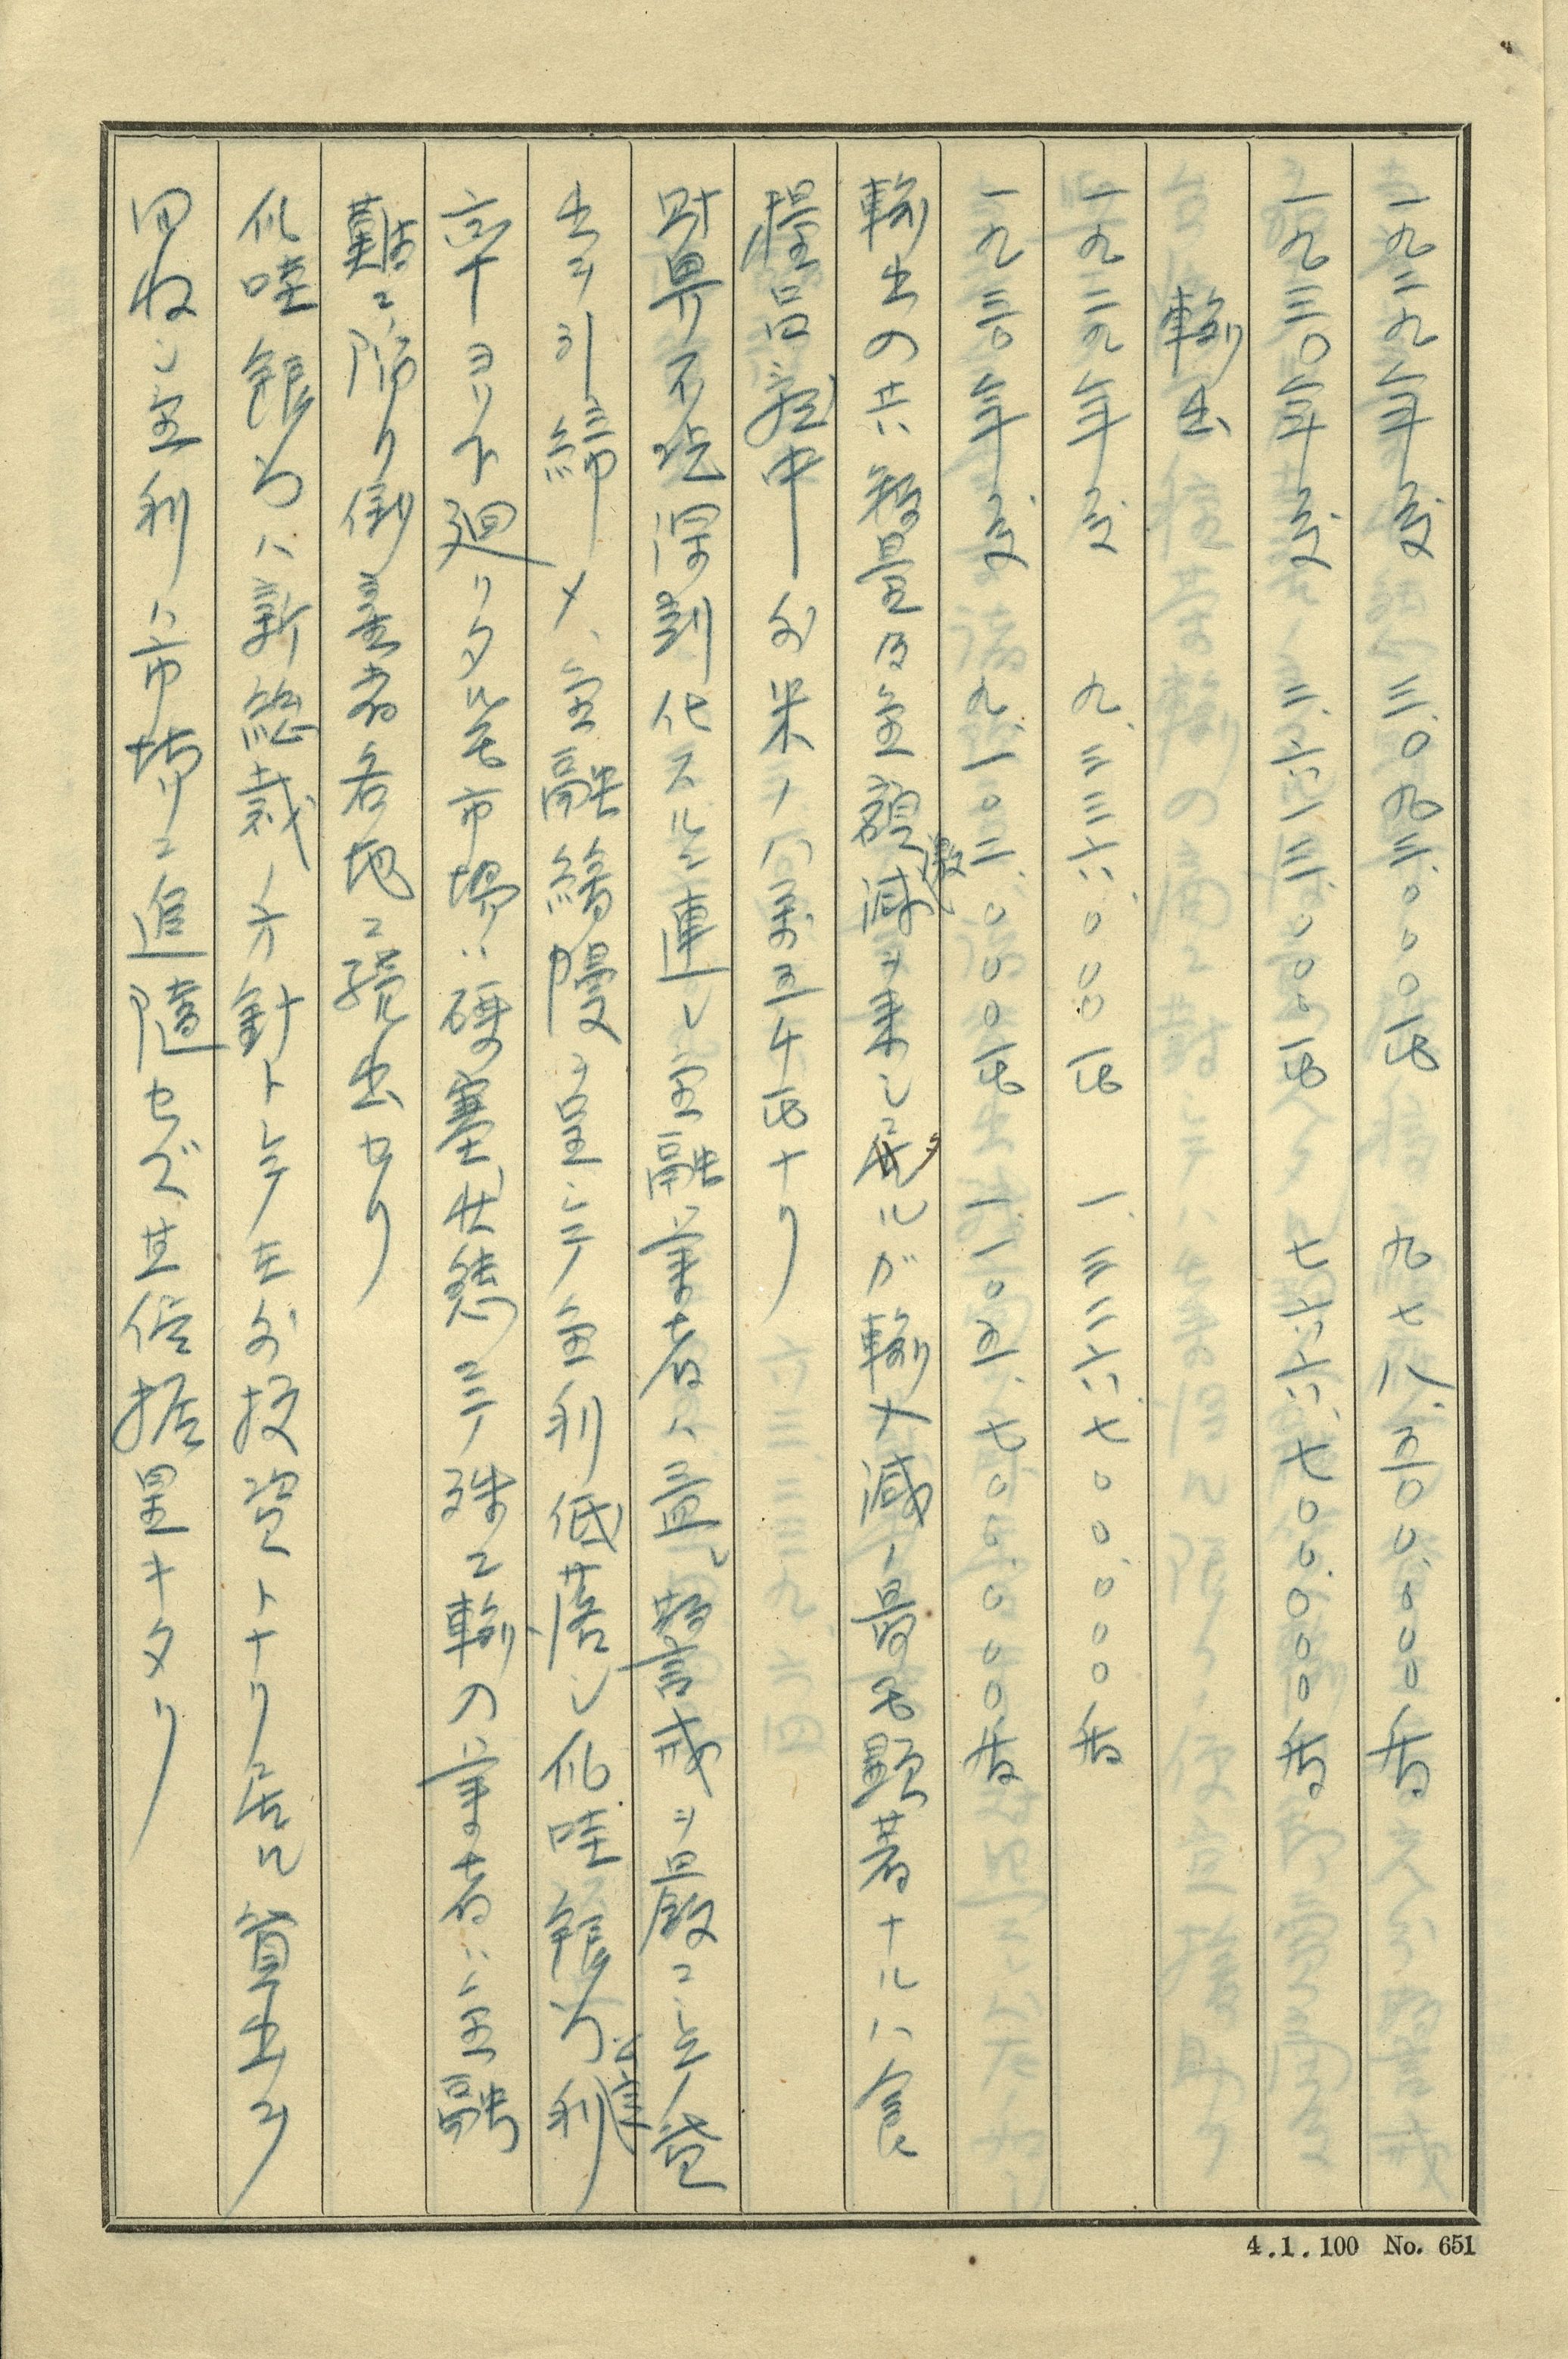 一九二九年度 三、〇九三、〇〇〇瓲 九七八、五〇〇、〇〇〇盾
一九三〇年度 二、六一三、〇〇〇瓲 七六六、七〇〇、〇〇〇盾
輸出
一九二九年度 九、三三六、〇〇〇瓲 一、三二六、七〇〇、〇〇〇盾
一九三〇年度 九、一〇二、〇〇〇瓲 一、一〇五、七〇〇、〇〇〇盾
輸出の共ハ数量及金額激減ヲ来し居ルガ輸入減ノ最モ顕著ナルハ食
糧品就中外米ノ八万五千瓲ナリ
財界不況深刻化スルニ連レ金融業者ハ益〻警戒ヲ厳ニシテ貸
出ヲ引締メ、金融緩慢ヲ呈シテ金利低落し爪哇銀行公定利
率ヨリ下廻リタルモ市場ハ硬塞状態ニテ殊ニ輸入業者ハ金融
難ニ陥り倒産者各地ニ続出セリ
爪哇銀行ハ新総裁ノ方針トシテ在外投資トナリ居ル貸出ヲ
回収シ金利ハ市場ニ追随セズ其儘据置キタリ
4.1.100 No. 651